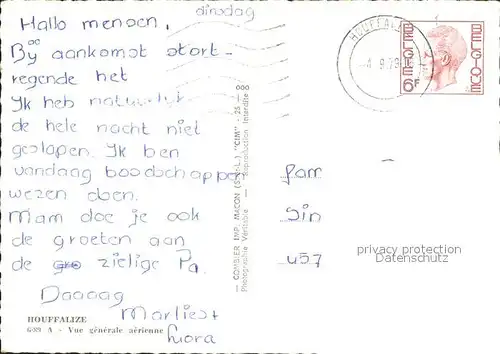 dinsdag
Hallo mensen,
Bij aankomst stort-
regende het
Ik heb natuurlijk
de hele nacht niet
geslapen. Ik ben
vandaag boodschappen
wezen doen.
Mam doe je ook
de groeten aan
de zielige Pa.
Daaaag
Marlies +
Lora
HOUFFALIZE
639 A - Vue générale aérienne
COMBIER IMP. MACON (S.-&-L.) "CIM"
Photographie Véritable - Reproduction Interdite
HOUFFALIZE
4 9.79
BELGIE-BELGIQUE
6F
Fam
457
privacy protection
Datenschutz